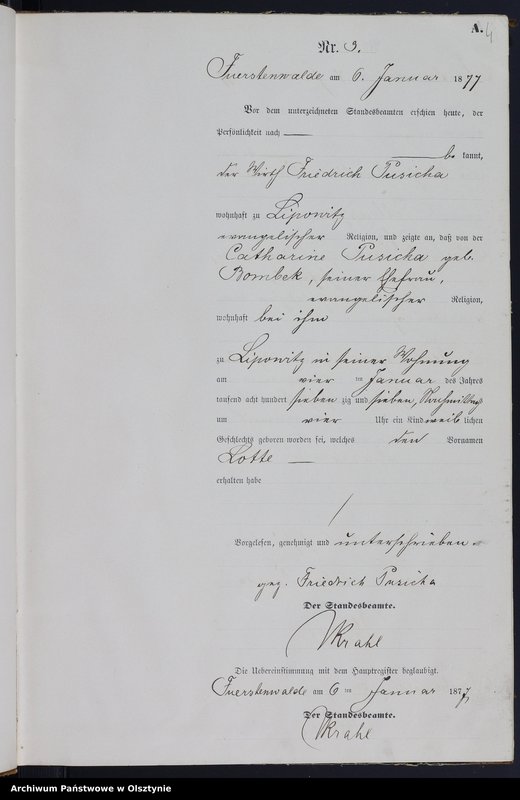 A.
4
Nr. 3.
Fuerstenwalde am 6. Januar 1877
Vor dem unterzeichneten Standesbeamten erschien heute, der
Persönlichkeit nach
be kannt,
der Wirth Friedrich Pusicha
wohnhaft zu Lipowitz
evangelischer Religion, und zeigte an, daß von der
Catharine Pusicha geb.
Bombek, seiner Ehefrau,
evangelischer Religion,
wohnhaft bei ihm
zu Lipowitz in seiner Wohnung
am vier ten Januar des Jahres
tausend acht hundert sieben zig und sieben, Nachmittags
um vier Uhr ein Kind weib lichen
Geschlechts geboren worden sei, welches den Vornamen
Lotte
erhalten habe
Vorgelesen, genehmigt und unterschrieben
gez. Friedrich Pusicha
Der Standesbeamte.
Krahl
Die Uebereinstimmung mit dem Hauptregister beglaubigt.
Fuerstenwalde am 6 ten Januar 1877
Der Standesbeamte.
Krahl
Archiwum Państwowe w Olsztynie